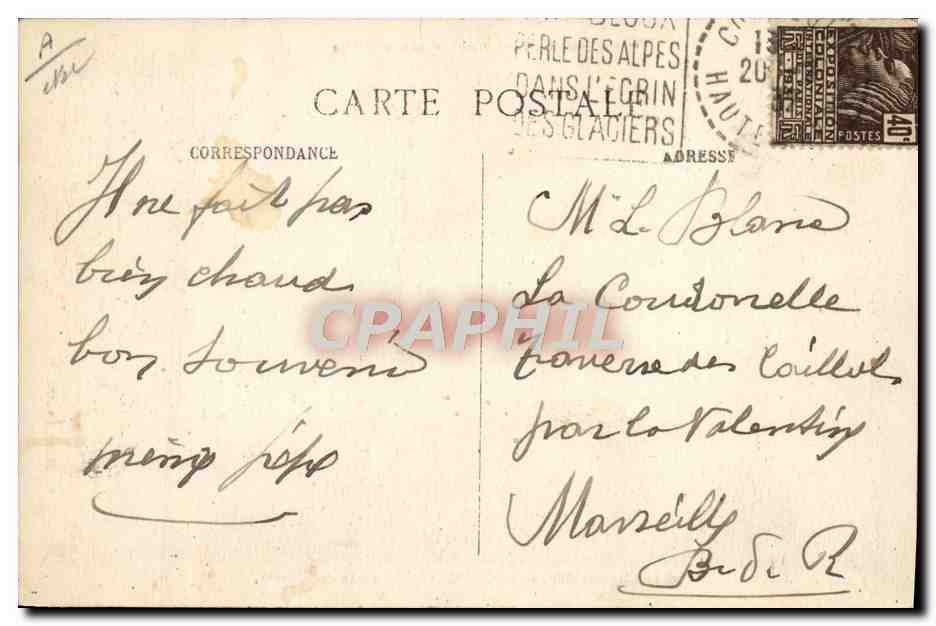 PERLE DES ALPES
DANS L'ECRIN
DES GLACIERS
HAUTE
20
EXPOSITION
COLONIALE
INTERNATIONALE
PARIS
POSTES
40c
CARTE POSTALE
CORRESPONDANCE
Il ne fait pas
bien chaud
bon souvenir
mémé pépé
ADRESSE
Mr L. Blanc
La
traverse des
par la Valentine
Marseille
B. d. R
CPAPHIL